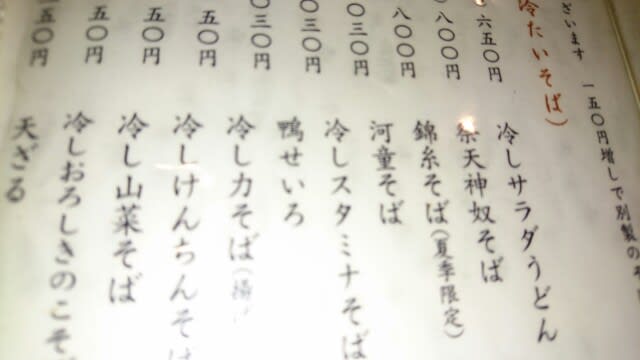 ざいます 一五〇円増しで別製の
冷たいそば)
冷しサラダうどん
六五〇円
天神奴そば
八〇〇円
錦糸そば(夏季限定)
八〇〇円
河童そば
〇三〇円
冷しスタミナそば
〇三〇円
鴨せいろ
〇三〇円
冷し力そば(揚げ
五〇円
冷しけんちんそば
五〇円
冷し山菜そば
五〇円
冷しおろしきのこそ
五〇円
天ざる